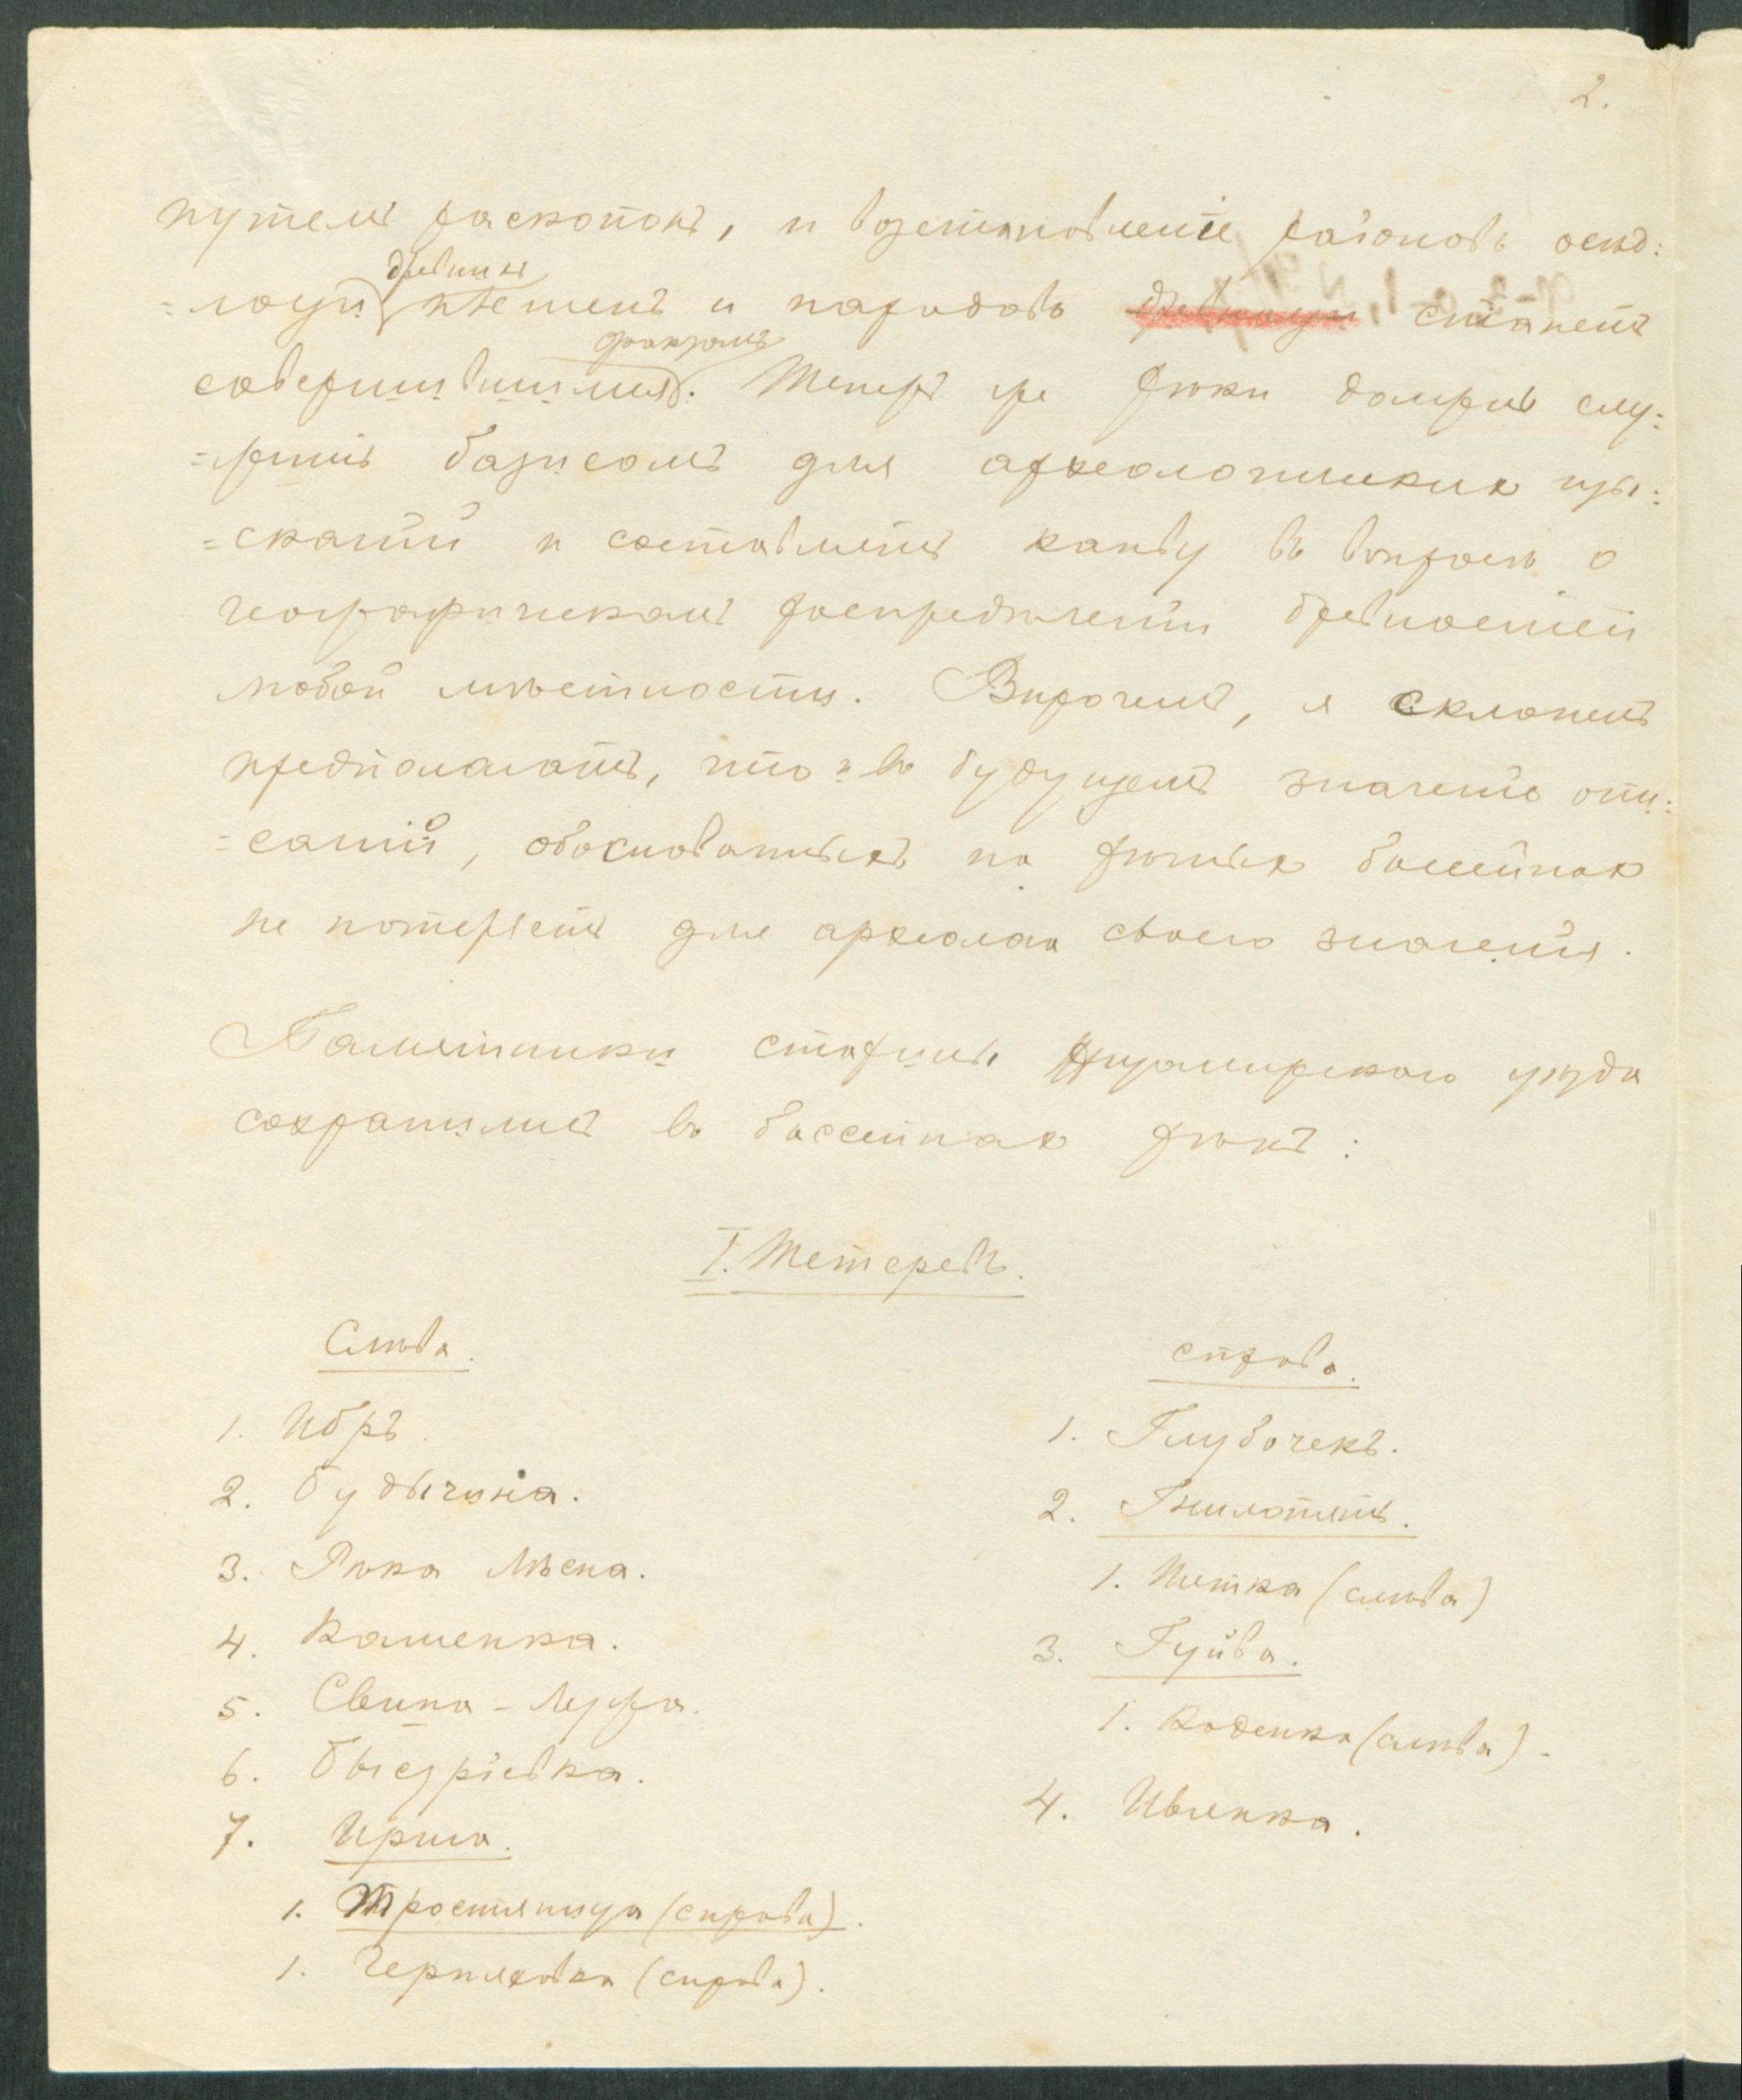 2.
путемъ раскопокъ, и возстановленіе районовъ осѣд=
древнихъ
=лости племенъ и народовъ древности станетъ
фактомъ
совершившимся. Теперь же рѣки должны слу=
=жить базисомъ для археологическихъ изы=
=сканій и составлять канву въ вопросѣ о
географическомъ распредѣленіи древностей
любой мѣстности. Впрочемъ, я склоненъ
предполагать, что и въ будущемъ значеніе опи=
=саній, обоснованныхъ на рѣчныхъ бассейнахъ
не потеряетъ для археолога своего значенія.
Памятники старины Житомирскаго уѣзда
сохранились въ бассейнахъ рѣкъ:
I. Тетеревъ.
Слѣва.
1. Ибръ.
2. Будычина.
3. Рѣка Лѣсна.
4. Каменка.
5. Свина-Лужа.
6. Быстріевка.
7. Ирша.
1. Тростяница (справа).
1. Черняховка (справа).
справа.
1. Глубочекъ.
2. Гнилопять.
1. Пятка (слѣва)
3. Гуйва.
1. Коденка (слѣва).
4. Ивянка.